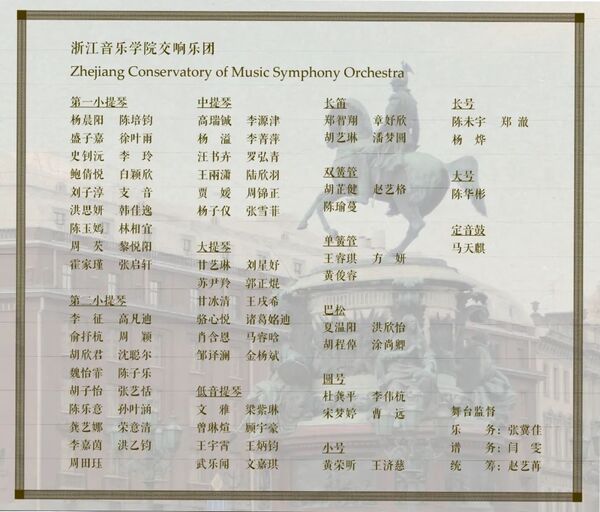 浙江音乐学院交响乐团
Zhejiang Conservatory of Music Symphony Orchestra
第一小提琴
杨晨阳 陈培钧
盛子嘉 徐叶雨
史钊沅 李玲
鲍倩悦 白颖欣
刘子淳 支音
洪思妍 韩佳逸
陈玉嫣 林相宜
周芡 黎悦阳
霍家瑾 张启轩
第二小提琴
李征 高凡迪
俞抒杭 周颖
胡欣君 沈聪尔
魏怡霏 陈子乐
胡子怡 张艺恬
陈乐意 孙叶涵
龚艺娜 荣意清
李嘉茵 洪乙钧
周田珏
中提琴
高瑞铖 李源津
杨溢 李菁萍
汪书卉 罗弘青
王雨潇 陆欣羽
贾媛 周锦正
杨子仪 张雪菲
大提琴
甘艺琳 刘星好
苏尹羚 郭正焜
甘冰清 王戌希
骆心悦 诸葛铭迪
肖含恩 马睿晗
邹译澜 金杨斌
低音提琴
文雅 梁紫琳
曾琳煊 顾宇豪
王宇宵 王炳钧
武乐闻 文嘉琪
长笛
郑智翔 章妤欣
胡艺琳 潘梦圆
双簧管
胡芷健 赵艺格
陈瑜蔓
单簧管
王睿琪 方妍
黄俊睿
巴松
夏温阳 洪欣怡
胡程倬 涂尚卿
圆号
杜龚平 李伟杭
宋梦婷 曹远
小号
黄荣昕 王济慈
长号
陈未宇 郑澈
杨烨
大号
陈华彬
定音鼓
马天麒
舞台监督
乐务：张冀佳
谱务：闫雯
统筹：赵艺苒